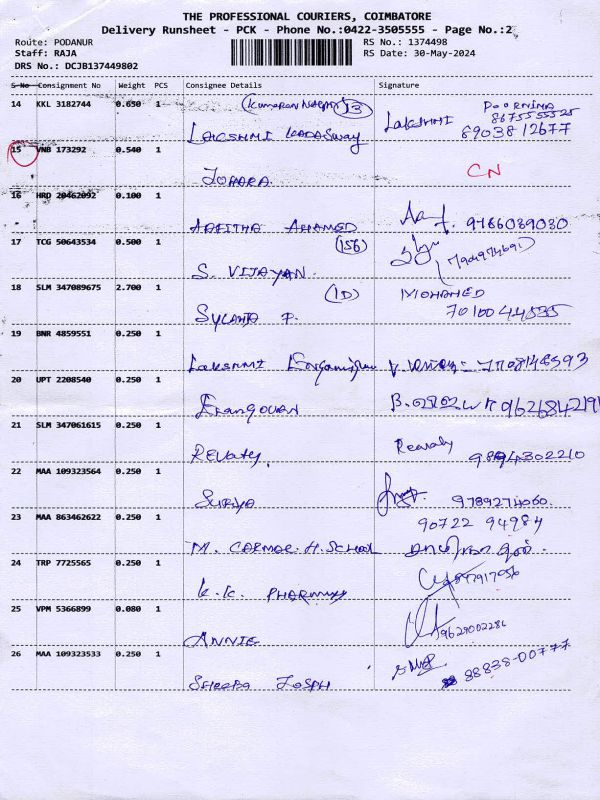 THE PROFESSIONAL COURIERS, COIMBATORE
Delivery Runsheet - PCK - Phone No.:0422-3505555 - Page No.:2
Route: PODANUR
RS No.: 1374498
Staff: RAJA
RS Date: 30-May-2024
DRS No.: DCJB137449802
S-No Consignment No Weight PCS Consignee Details Signature
14 KKL 3182744 0.650 1 (Kumaran Nagar) 13
POORNIMA
8675555525
LAKSHMI
LAKSHMI KADASWAY 8903812677
15 VNB 173292 0.540 1
CN
ZOHARA
16 HRD 20462092 0.100 1
AHAMED 9786039030
17 TCG 50643534 0.500 1 (156)
S. VIJAYAN.
18 SLM 347089675 2.700 1 (1D) MOHAMED
7010044535
19 BNR 4859551 0.250 1
LAKSHMI
20 UPT 2208540 0.250 1
ELANGOVAN
21 SLM 347061615 0.250 1
REVATHY 9894302210
22 MAA 109323564 0.250 1
SURYA 9789274060.
23 MAA 863462622 0.250 1 90722 94984
M. CARMAL. H. SCHOOL
24 TRP 7725565 0.250 1
K.K. PHARMACY
25 VPM 5366899 0.080 1
ANNIE 9629002286
26 MAA 109323533 0.250 1
88838-00777
SHEEBA JOSPH